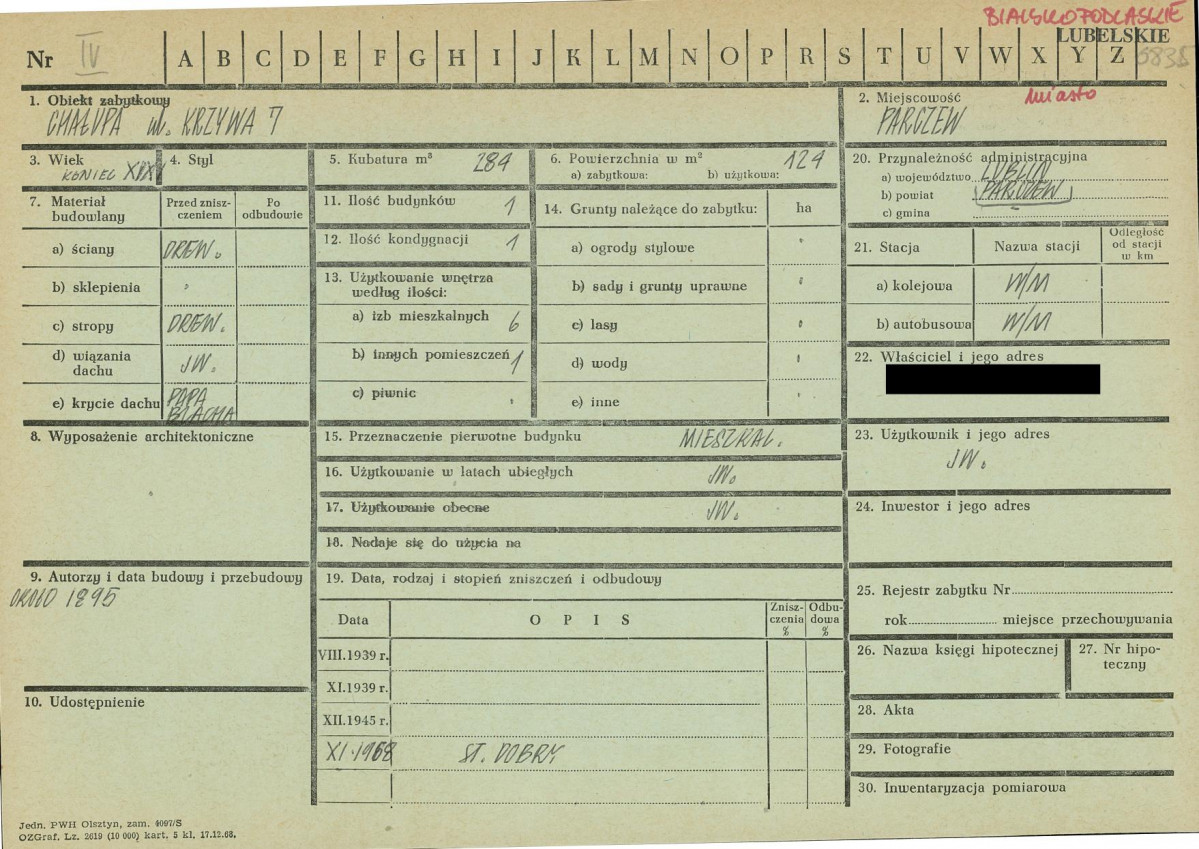 BIALSKOPODLASKIE
LUBELSKIE
Nr IV A B C D E F G H I J K L M N O P R S T U V W X Y Z 5835
1. Obiekt zabytkowy
CHAŁUPA ul. KRZYWA 7
2. Miejscowość miasto
PARCZEW
3. Wiek
KONIEC XIX
4. Styl
5. Kubatura m³ 284
6. Powierzchnia w m² 124
a) zabytkowa: b) użytkowa:
20. Przynależność administracyjna
a) województwo LUBLIN
b) powiat PARCZEW
c) gmina
7. Materiał budowlany
Przed zniszczeniem
Po odbudowie
a) ściany DREW.
b) sklepienia
c) stropy DREW.
d) wiązania dachu JW.
e) krycie dachu PAPA BLACHA
11. Ilość budynków 1
12. Ilość kondygnacji 1
13. Użytkowanie wnętrza według ilości:
a) izb mieszkalnych 6
b) innych pomieszczeń 1
c) piwnic
14. Grunty należące do zabytku: ha
a) ogrody stylowe
b) sady i grunty uprawne
c) lasy
d) wody
e) inne
21. Stacja
Nazwa stacji
Odległość od stacji w km
a) kolejowa W/M
b) autobusowa W/M
22. Właściciel i jego adres
8. Wyposażenie architektoniczne
15. Przeznaczenie pierwotne budynku MIESZKAL.
16. Użytkowanie w latach ubiegłych JW.
17. Użytkowanie obecne JW.
18. Nadaje się do użycia na
23. Użytkownik i jego adres
JW.
24. Inwestor i jego adres
9. Autorzy i data budowy i przebudowy
OKOŁO 1895
19. Data, rodzaj i stopień zniszczeń i odbudowy
Data
O P I S
Zniszczenia %
Odbudowa %
VIII.1939 r.
XI.1939 r.
XII.1945 r.
XI.1968 ST. DOBRY
25. Rejestr zabytku Nr
rok miejsce przechowywania
26. Nazwa księgi hipotecznej
27. Nr hipoteczny
10. Udostępnienie
28. Akta
29. Fotografie
30. Inwentaryzacja pomiarowa
Jedn. PWH Olsztyn, zam. 4097/S
OZGraf. Lz. 2619 (10 000) kart. 5 kl. 17.12.68.